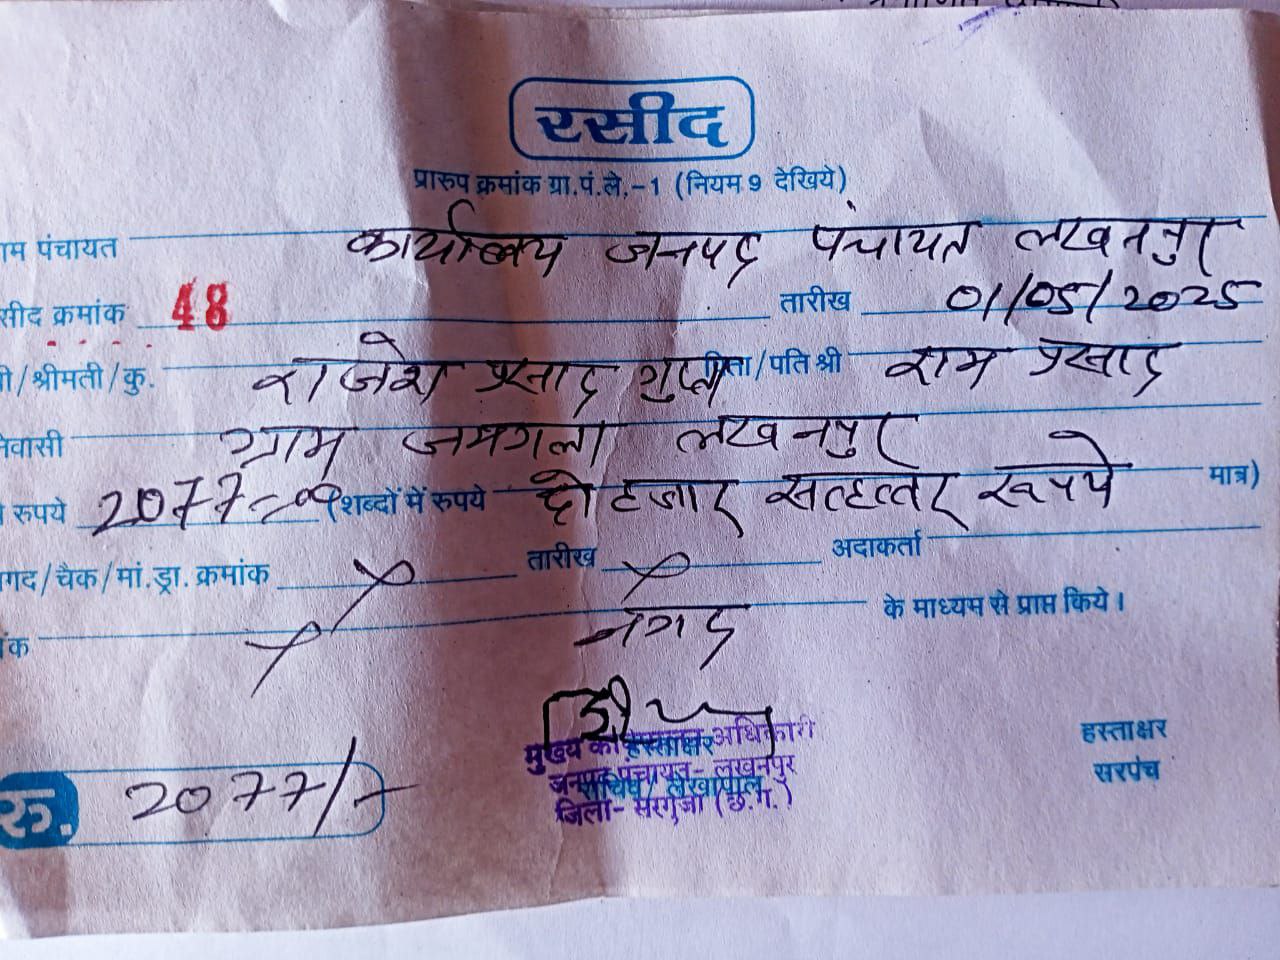 रसीद
प्रारुप क्रमांक ग्रा.पं.ले.-1 (नियम 9 देखिये)
ाम पंचायत कार्यालय जनपद पंचायत लखनपुर
सीद क्रमांक 48 तारीख 01/05/2025
ी/श्रीमती/कु. राजेश प्रसाद गुप्ता पिता/पति श्री राम प्रसाद
निवासी ग्राम जमगला लखनपुर
रुपये 2077=00 (शब्दों में रुपये दो हजार सतहत्तर रूपये मात्र)
गद/चैक/मां.ड्रा. क्रमांक तारीख अदाकर्ता
ंक नगद के माध्यम से प्राप्त किये।
हस्ताक्षर
मुख्य कार्यपालन अधिकारी
जनपद पंचायत- लखनपुर
सचिव/लेखापाल
जिला- सरगुजा (छ.ग.)
हस्ताक्षर
सरपंच
रु. 2077/-